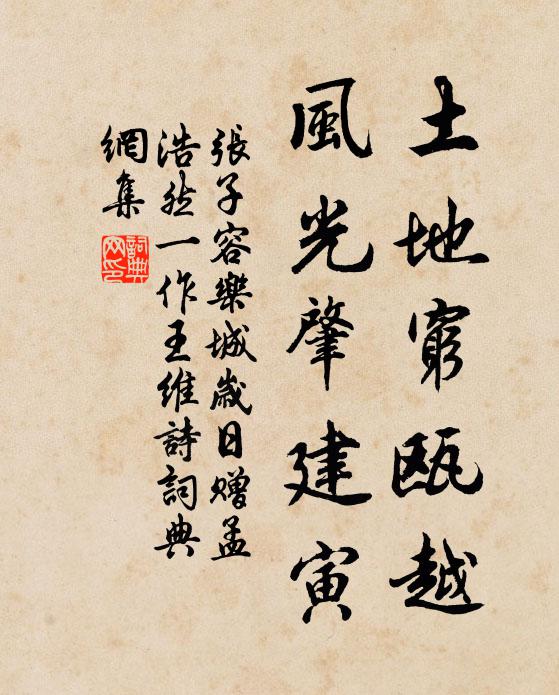 土地窮甌越
風光肇建寅
張子容樂城歲日贈孟
浩然一作王維詩詞典
網集
詞典网印